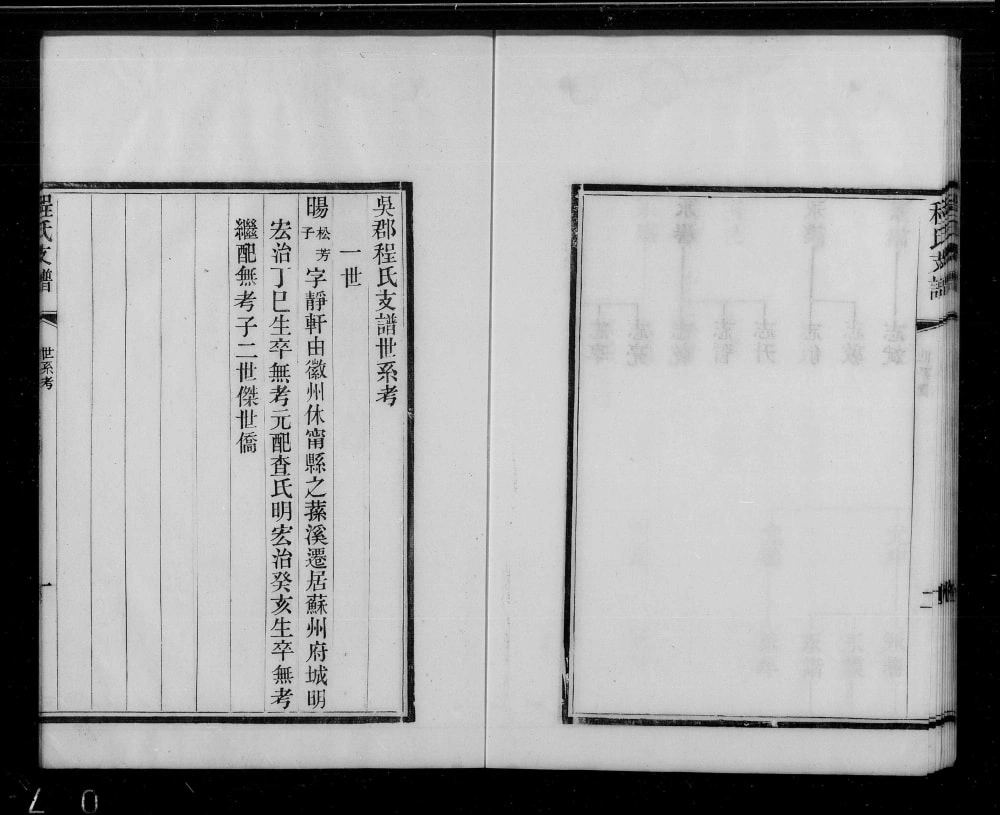 程氏支譜
二
吳郡程氏支譜世系考
一世
暘松芳子字靜軒由徽州休甯縣之蓀溪遷居蘇州府城明
宏治丁巳生卒無考元配查氏明宏治癸亥生卒無考
繼配無考子二世傑世僑
程氏支譜
世系考
一